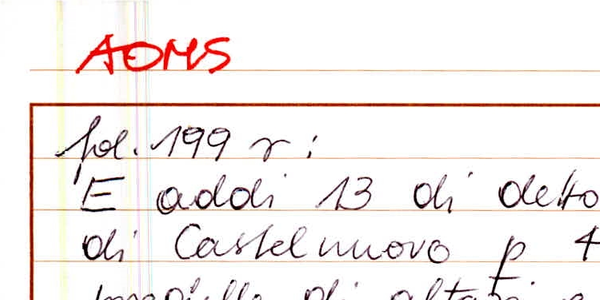 AOMS
fol. 199 r:
E addi 13 di detto
di Castelnuovo p 4
di